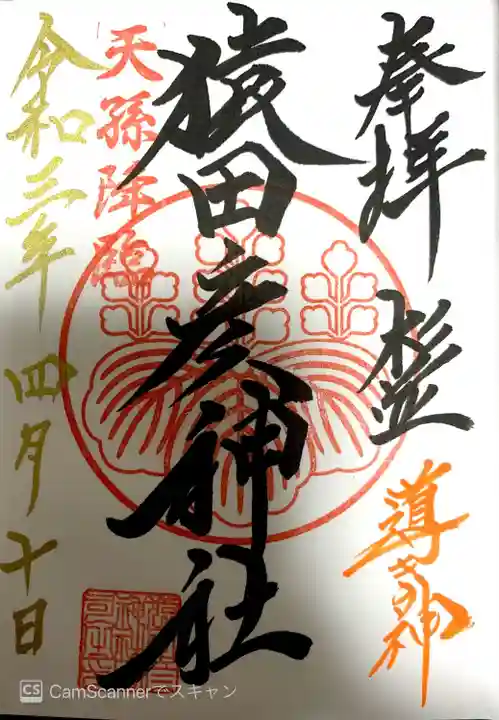 奉拝
導きの神
猿田彦神社
天孫降臨
令和三年 四月十日
CamScannerでスキャン